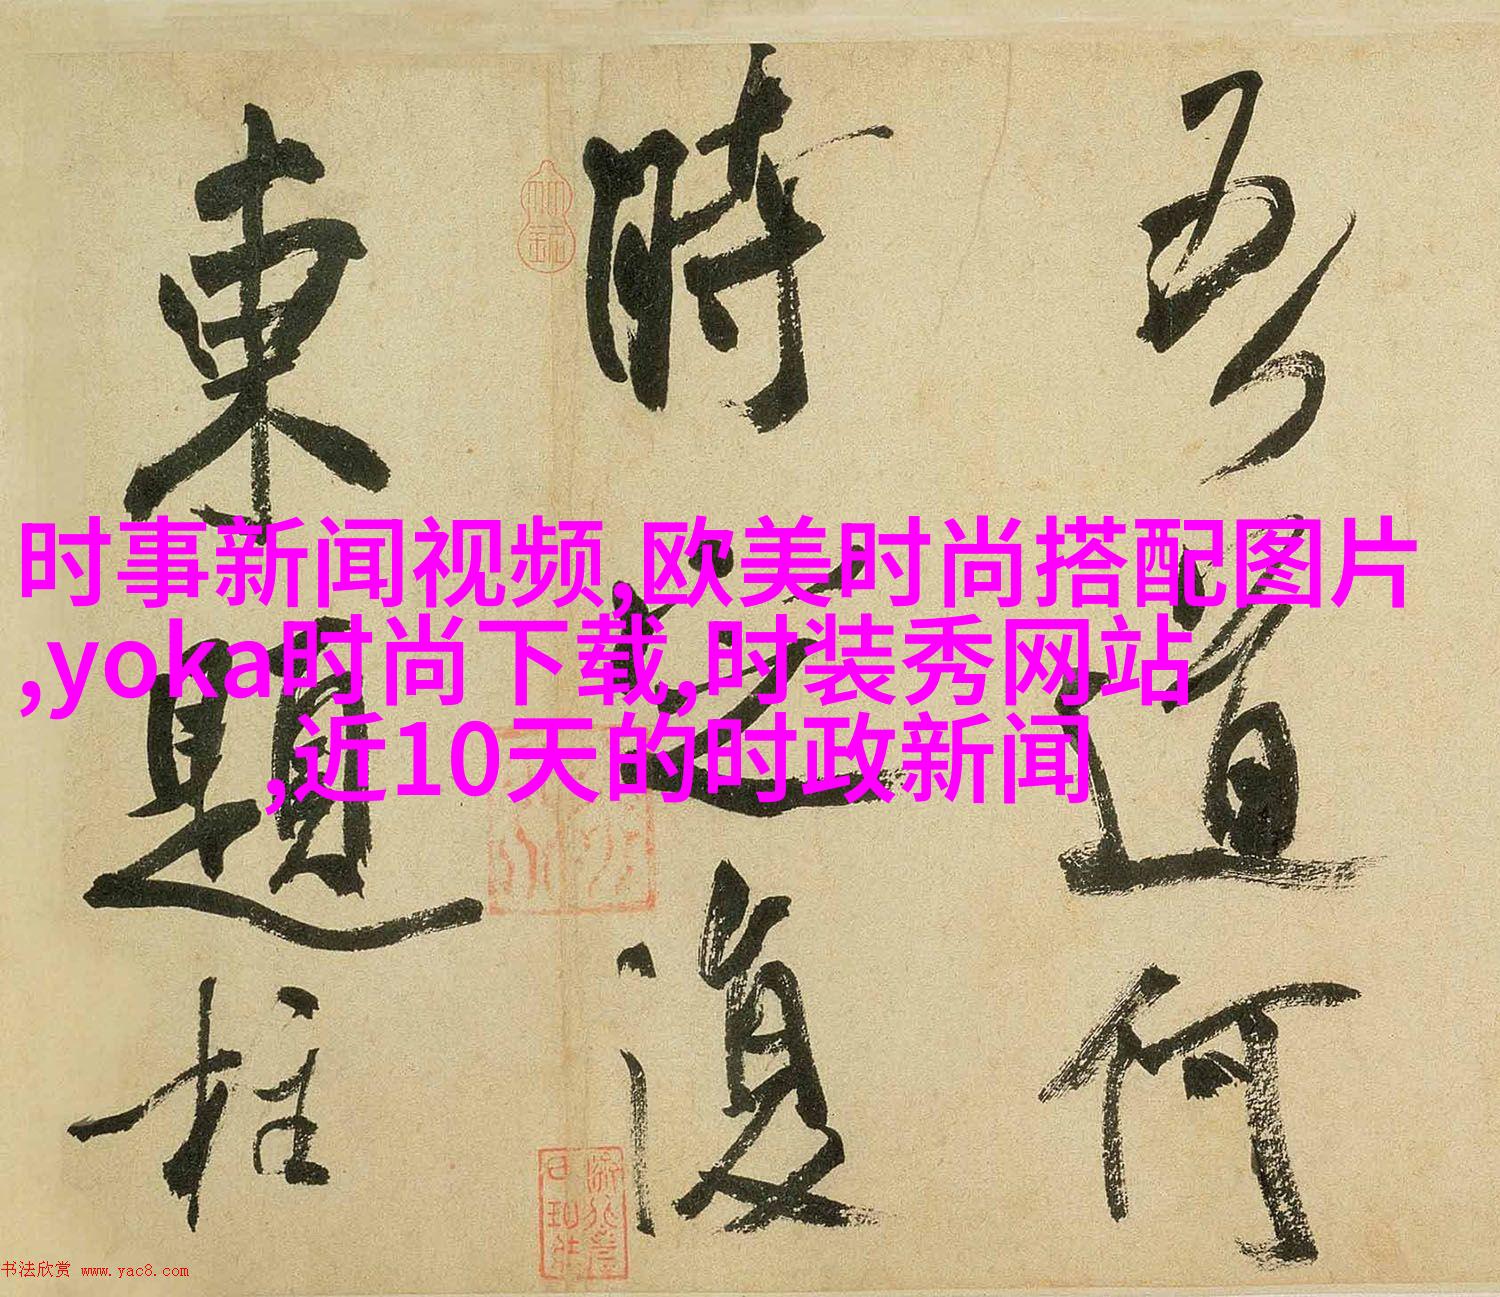 吾道何
時之復
東題柱
时事新闻视频,欧美时尚搭配图片
,yoka时尚下载,时装秀网站
,近10天的时政新闻
书法欣赏 www.yac8.com